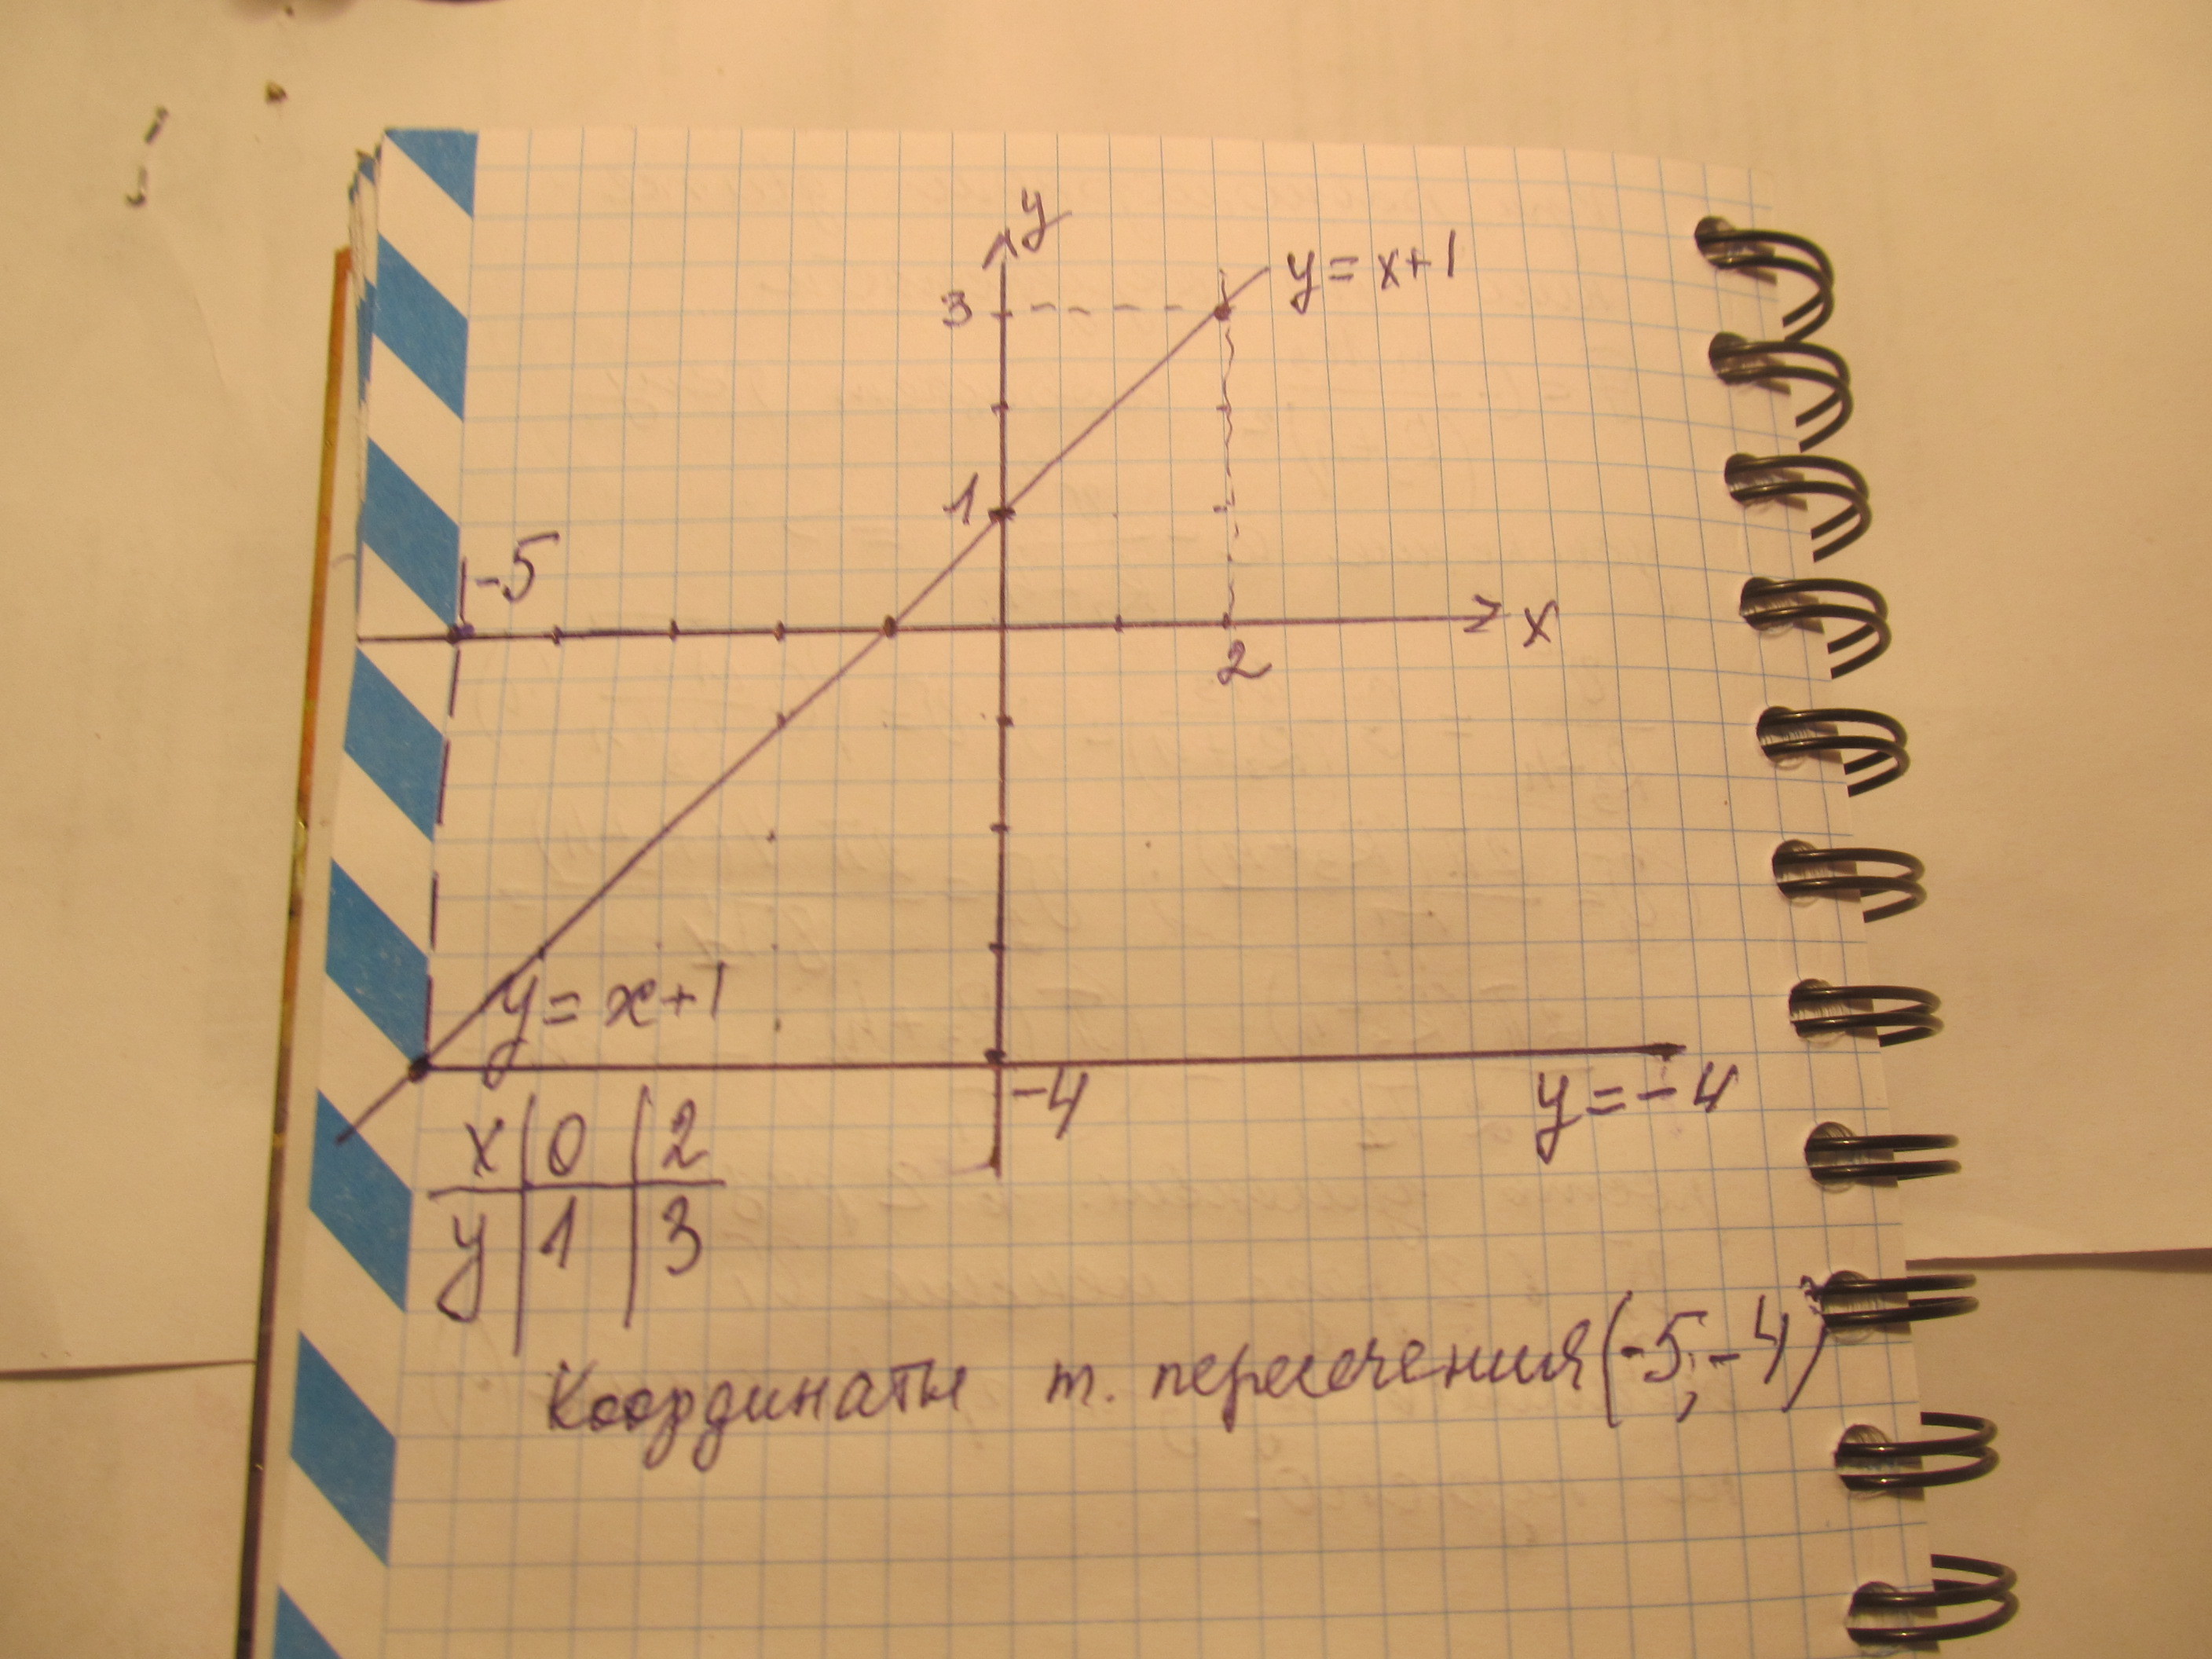 y
3
y = x+1
1
-5
x
2
y = x+1
-4
y = -4
x 0 2
y 1 3
Координаты т. пересечения (-5; -4)